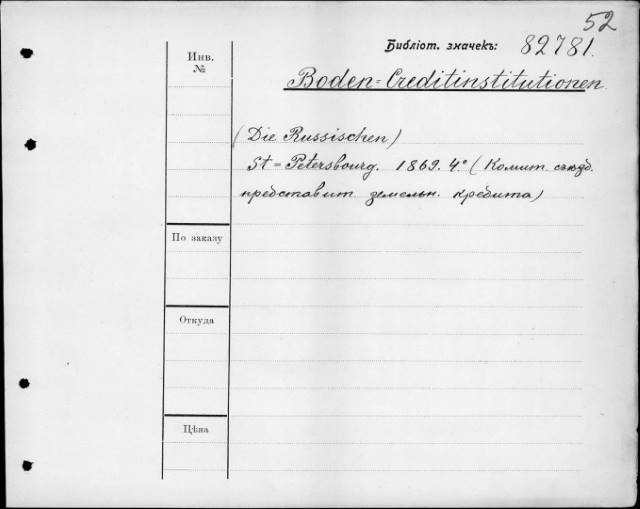 52
Библіот. значекъ: 82781.
Инв.
№
Boden=Creditinstitutionen.
(Die Russischen)
St=Petersbourg. 1869. 4º (Комит. съѣзд.
представит. земельн. кредита)
По заказу
Откуда
Цѣна